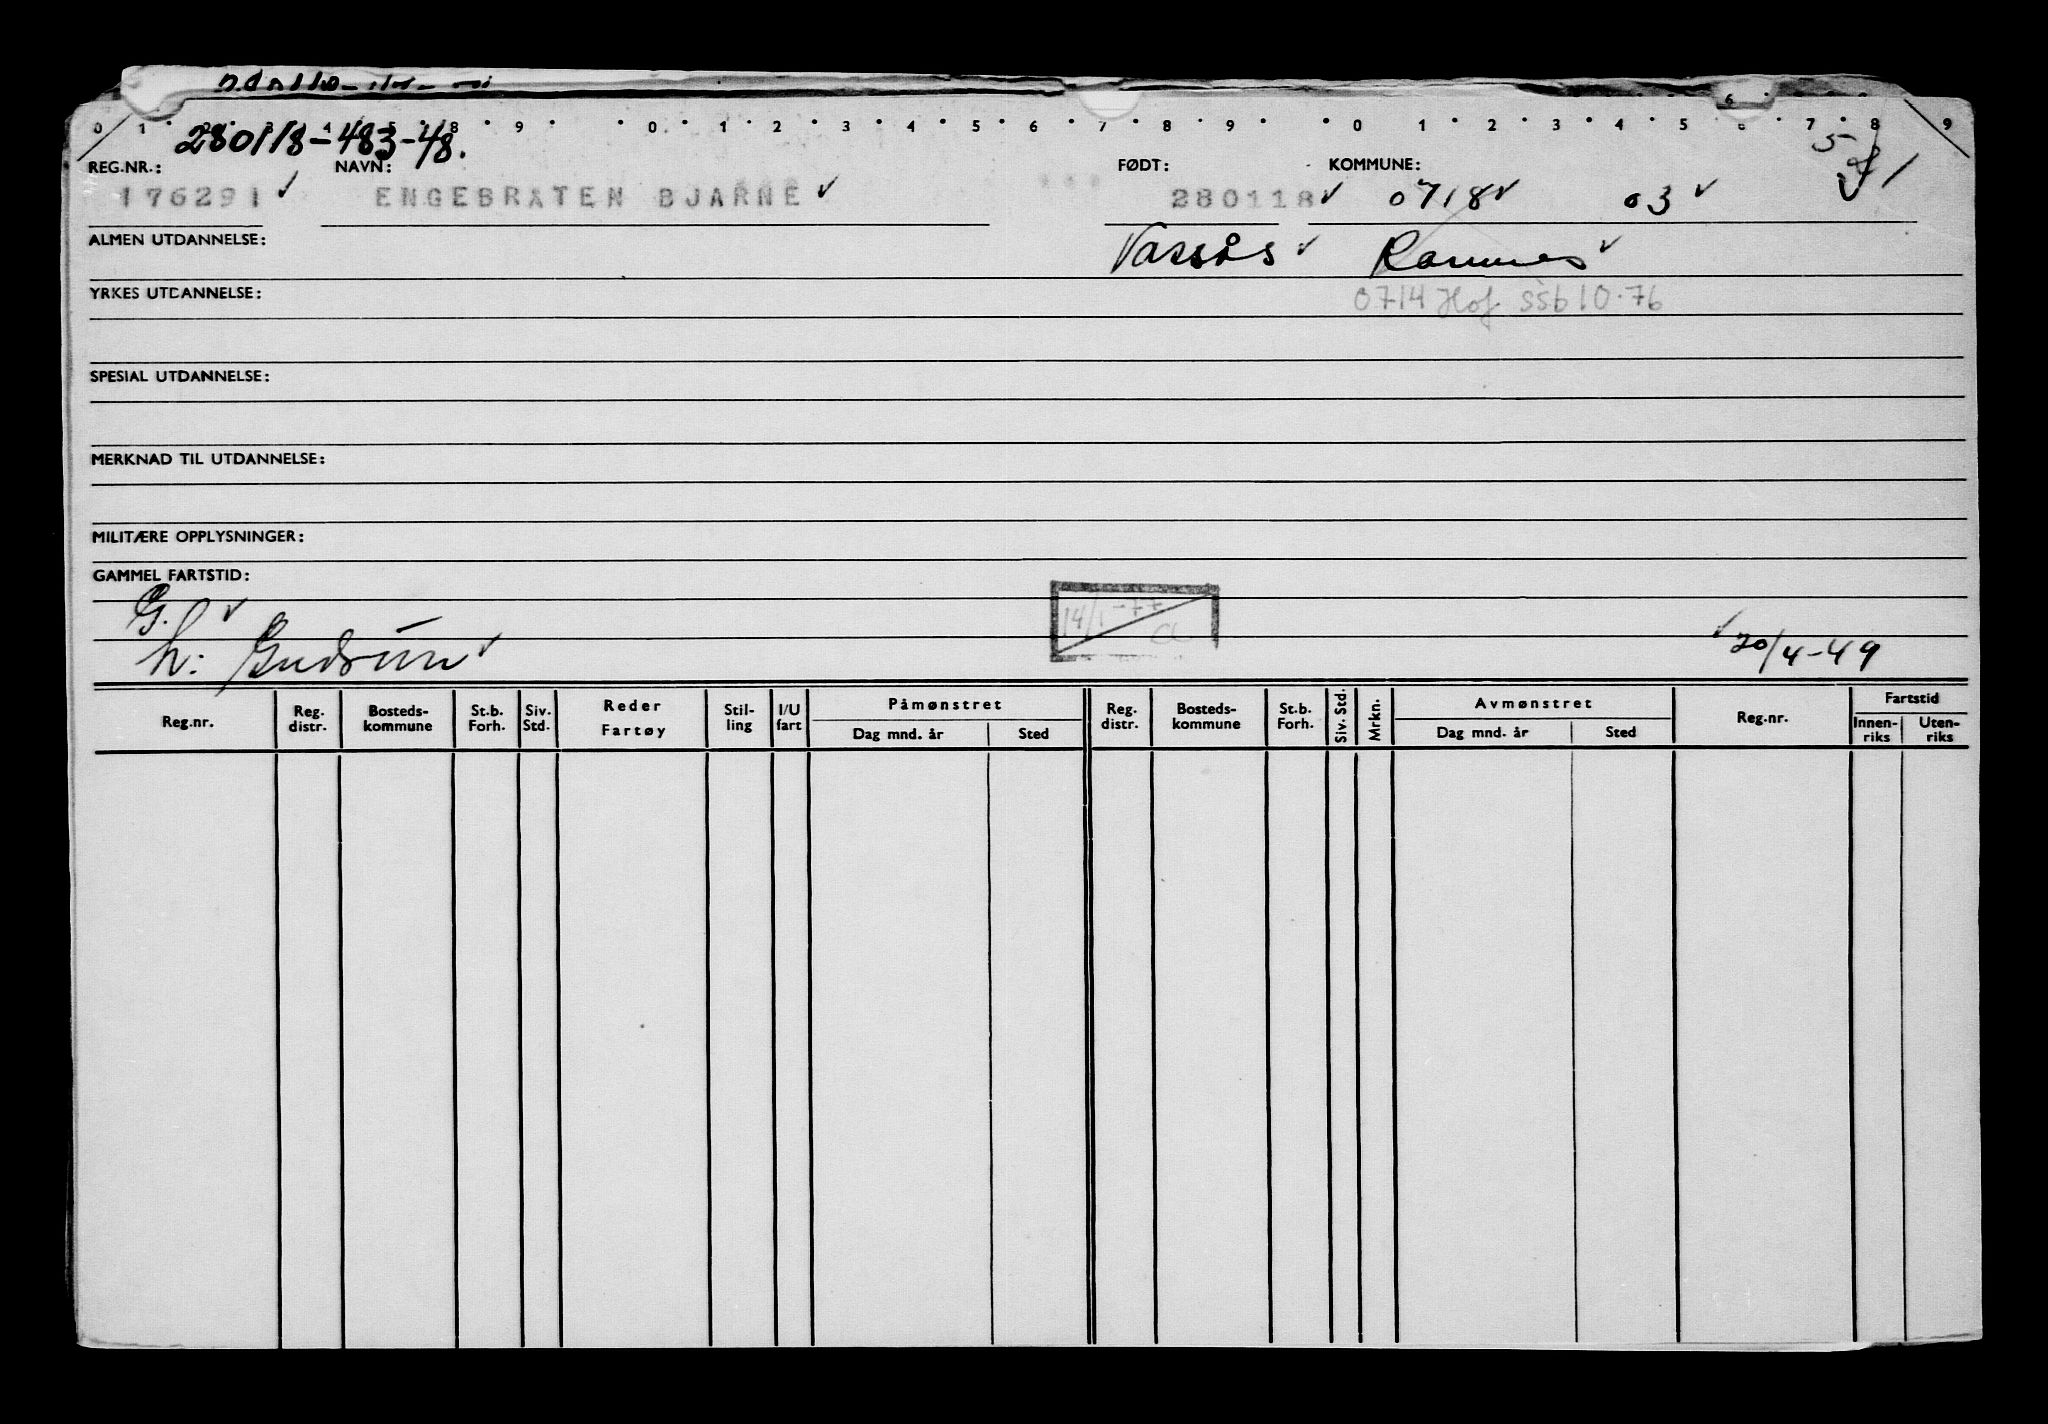 0 1 8 9 0 1 2 3 4 5 6 7 8 9 0 1 2 3 4 5 6 7 8 9
280118-483-48.
5
REG.NR.: NAVN: FØDT: KOMMUNE:
176291 ENGEBRATEN BJARNE 280118 0718 03
ALMEN UTDANNELSE: Vassås Ramnes
YRKES UTDANNELSE: 0714 Hof ssb 10.76
SPESIAL UTDANNELSE:
MERKNAD TIL UTDANNELSE:
MILITÆRE OPPLYSNINGER:
GAMMEL FARTSTID:
G. 14/1-77
h: Gudrun 20/4-49
Reg.nr. Reg. distr. Bosteds-kommune St.b. Forh. Siv. Std. Reder Fartøy Stil-ling I/U fart Påmønstret Dag mnd. år Sted Reg. distr. Bosteds-kommune St.b. Forh. Siv. Std. Mrkn. Avmønstret Dag mnd. år Sted Reg.nr. Fartstid Innen-riks Uten-riks